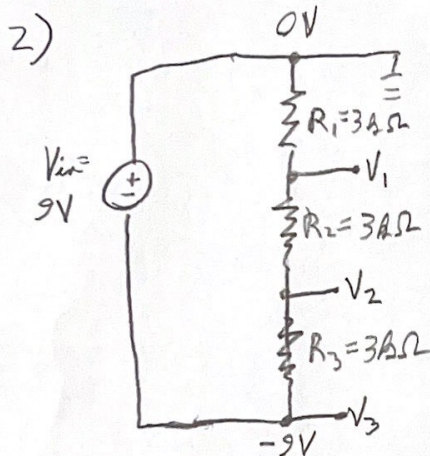 2)
0V
R₁=3kΩ
Vin=
9V
V₁
R₂=3kΩ
V₂
R₃=3kΩ
V₃
-9V